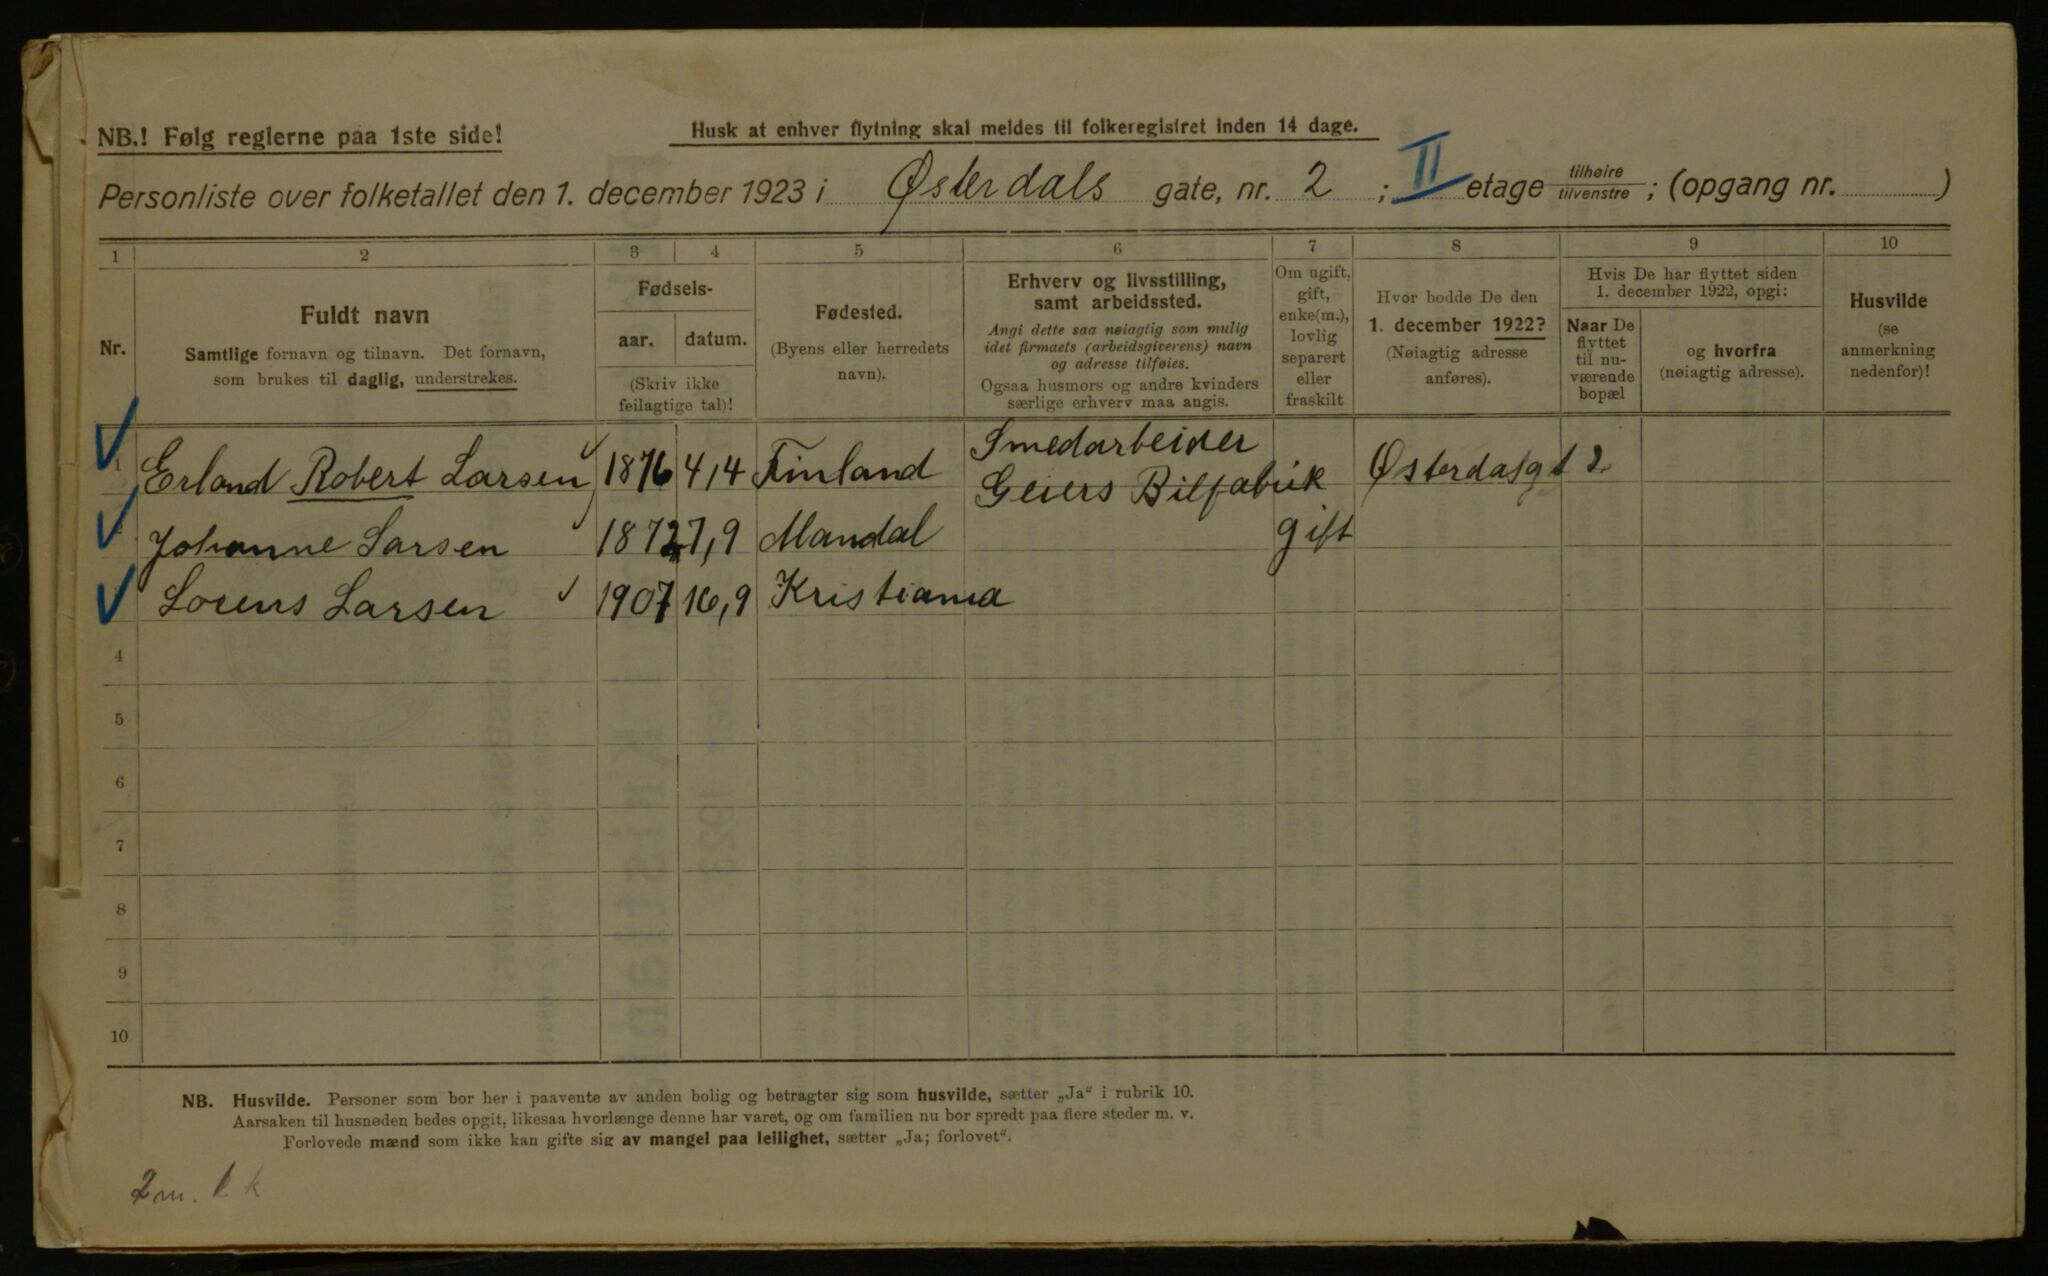 NB.! Følg reglerne paa 1ste side!
Husk at enhver flytning skal meldes til folkeregistret inden 14 dage.
Personliste over folketallet den 1. december 1923 i Østerdals gate, nr. 2 ; II etage tilhøire tilvenstre ; (opgang nr. )
1 2 3 4 5 6 7 8 9 10
Nr.
Fuldt navn
Samtlige fornavn og tilnavn. Det fornavn,
som brukes til daglig, understrekes.
Fødsels-
aar. datum.
(Skriv ikke
feilagtige tal)!
Fødested.
(Byens eller herredets
navn).
Erhverv og livsstilling,
samt arbeidssted.
Angi dette saa nøiagtig som mulig
idet firmaets (arbeidsgiverens) navn
og adresse tilføies.
Ogsaa husmors og andre kvinders
særlige erhverv maa angis.
Om ugift,
gift,
enke(m.),
lovlig
separert
eller
fraskilt
Hvor bodde De den
1. december 1922?
(Nøiagtig adresse
anføres).
Hvis De har flyttet siden
1. december 1922, opgi:
Naar De
flyttet
til nu-
værende
bopæl
og hvorfra
(nøiagtig adresse).
Husvilde
(se
anmerkning
nedenfor)!
1 Erland Robert Larsen 1876 4/4 Finland Smedarbeider
Geiers Bilfabrik Østerdalsgt 2
Johanne Larsen 1872 7,9 Mandal gift
Lorens Larsen 1907 16,9 Kristiania
4
5
6
7
8
9
10
NB. Husvilde. Personer som bor her i paavente av anden bolig og betragter sig som husvilde, sætter „Ja" i rubrik 10.
Aarsaken til husnøden bedes opgit, likesaa hvorlænge denne har varet, og om familien nu bor spredt paa flere steder m. v.
Forlovede mænd som ikke kan gifte sig av mangel paa leilighet, sætter „Ja; forlovet".
2 m. 1 k